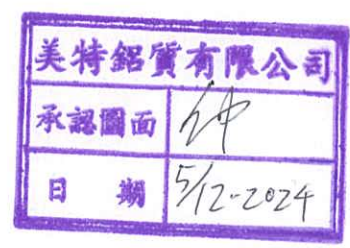 美特鋁質有限公司
承認圖面
日 期 5/12-2024